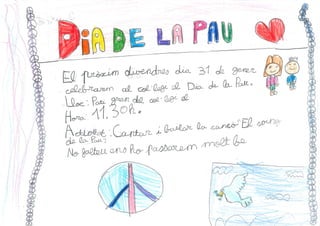 DIA DE LA PAU
El pròxim divendres dia 31 de gener
celebrarem al col·legi el Dia de la Pau.
Lloc: Pati gran del col·legi
Hora: 11,30h.
Activitat: Cantar i ballar la cançó "El
de la Pau"
No falteu ens ho passarem molt bé